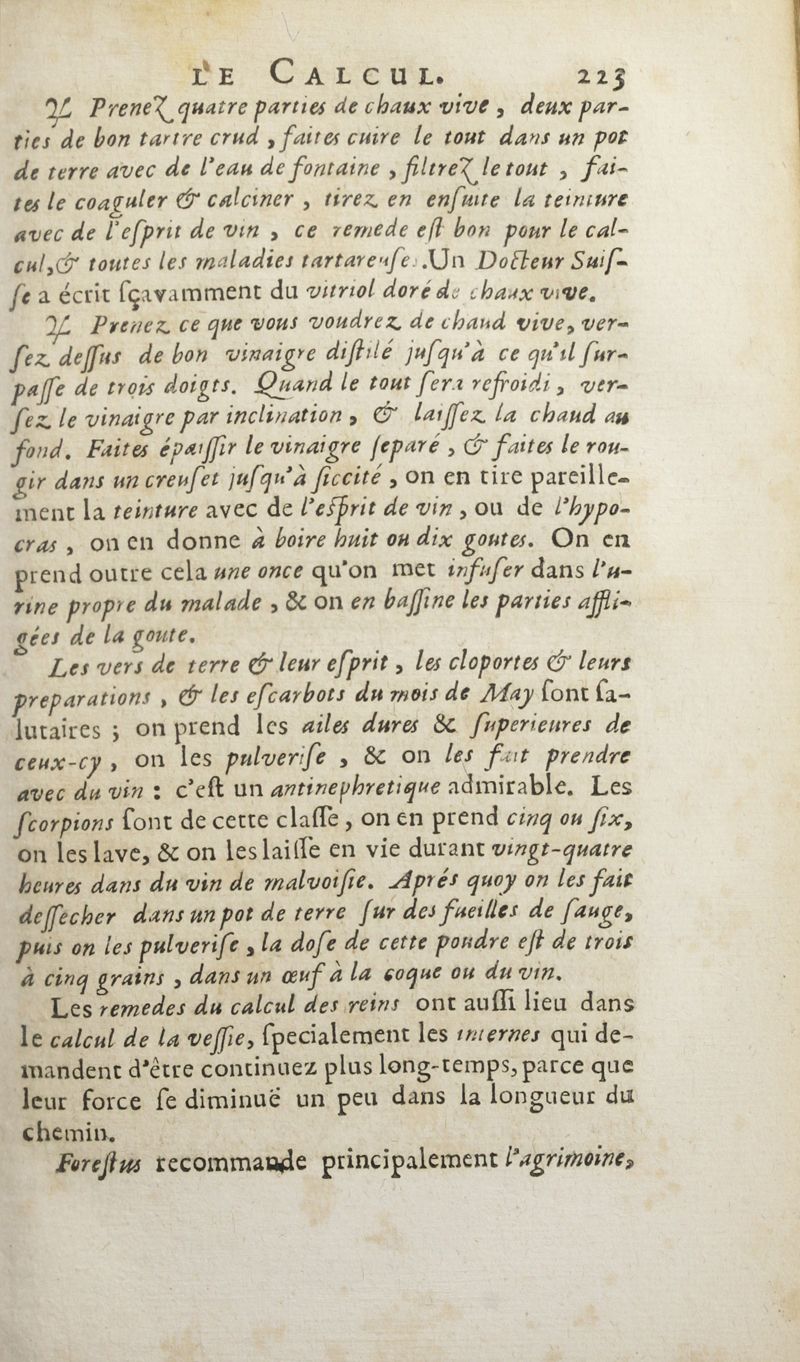 LE CALCUL. 223
♃ Prenez quatre parties de chaux vive, deux par-
ties de bon tartre crud, faites cuire le tout dans un pot
de terre avec de l'eau de fontaine, filtrez le tout, fai-
tes le coaguler & calciner, tirez en enſuite la teinture
avec de l'eſprit de vin, ce remede eſt bon pour le cal-
cul, & toutes les maladies tartareuſe. Un Docteur Suiſ-
ſe a écrit ſçavamment du vitriol doré de chaux vive.
♃ Prenez ce que vous voudrez de chaud vive, ver-
ſez deſſus de bon vinaigre diſtilé juſqu'à ce qu'il ſur-
paſſe de trois doigts. Quand le tout ſera refroidi, ver-
ſez le vinaigre par inclination, & laiſſez la chaud au
fond. Faites épaiſſir le vinaigre ſeparé, & faites le rou-
gir dans un creuſet juſqu'à ſiccité, on en tire pareille-
ment la teinture avec de l'eſprit de vin, ou de l'hypo-
cras, on en donne à boire huit ou dix goutes. On en
prend outre cela une once qu'on met infuſer dans l'u-
rine propre du malade, & on en baſſine les parties affli-
gées de la goute.
Les vers de terre & leur eſprit, les cloportes & leurs
preparations, & les eſcarbots du mois de May ſont ſa-
lutaires; on prend les ailes dures & ſuperieures de
ceux-cy, on les pulveriſe, & on les fait prendre
avec du vin : c'eſt un antinephretique admirable. Les
ſcorpions ſont de cette claſſe, on en prend cinq ou ſix,
on les lave, & on les laiſſe en vie durant vingt-quatre
heures dans du vin de malvoiſie. Aprés quoy on les fait
deſſecher dans un pot de terre ſur des fueilles de ſauge,
puis on les pulveriſe, la doſe de cette poudre eſt de trois
à cinq grains, dans un œuf à la coque ou du vin.
Les remedes du calcul des reins ont auſſi lieu dans
le calcul de la veſſie, ſpecialement les internes qui de-
mandent d'être continuez plus long-temps, parce que
leur force ſe diminuë un peu dans la longueur du
chemin.
Foreſtus recommande principalement l'agrimoine,